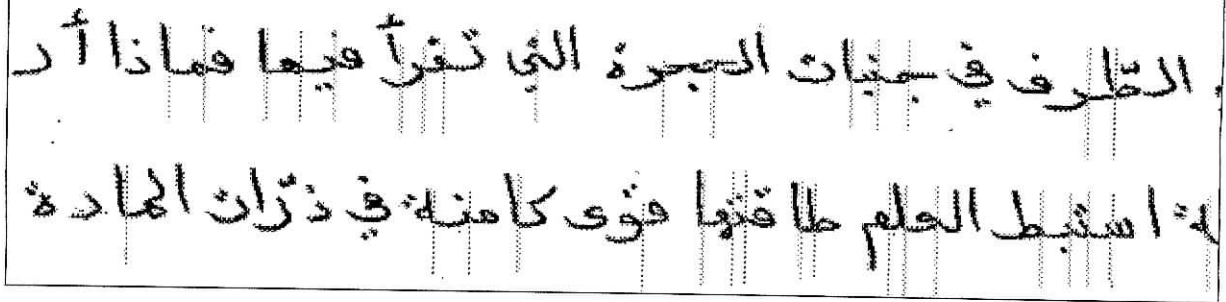 الطّرف في جنبات الحجرة التي تقرأ فيها فماذا أر
لة استنبط العلم طاقتها قوى كامنة في ذرّات المادة